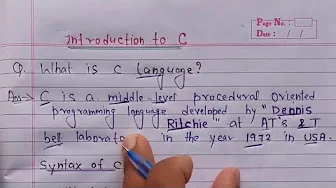 Page No.:
Date: / /
Introduction to C
Q. What is C language?
Ans→ C is a middle-level procedural oriented
programming language developed by "Dennis
Ritchie" at AT'S & T
bel laborato in the year 1972 in USA.
Syntax of C